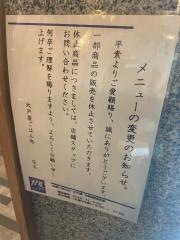 メニューの変更のお知らせ。
平素よりご愛顧賜り、誠にありがとうございます。
一部商品の販売を休止させていただきます。
休止商品につきましては、店舗スタッフに
お問い合わせください。
何卒ご理解を賜りますよう、よろしくお願い申し
上げます。